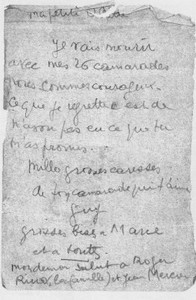 ma petite Odette
Je vais mourir
avec mes 26 camarades
nous sommes courageux.
Ce que je regrette c'est de
n'avoir pas eu ce que tu
m'as promis.
Mille grosses caresses
de ton camarade qui t'aime
Guy
grosses bises à Marie
et à toutes
mon dernier Salut à Roger
Rino, (la famille) et Jean Mercier